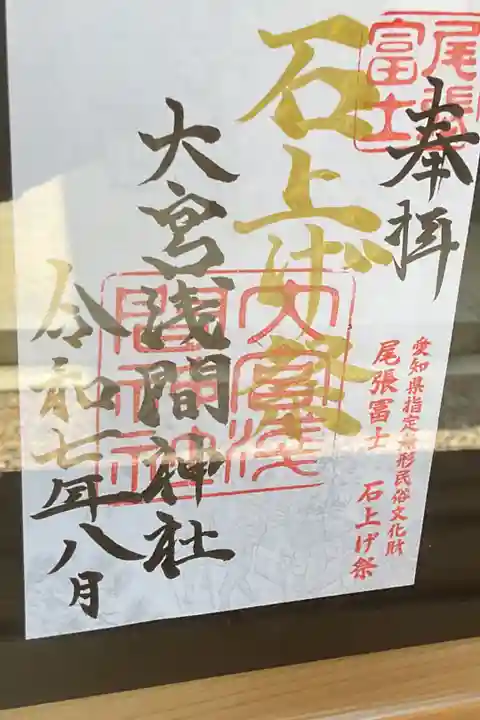 尾張
富士
奉拝
愛知県指定無形民俗文化財
尾張冨士 石上げ祭
石上げ祭
大宮浅間神社
大宮浅
間神社
令和七年八月